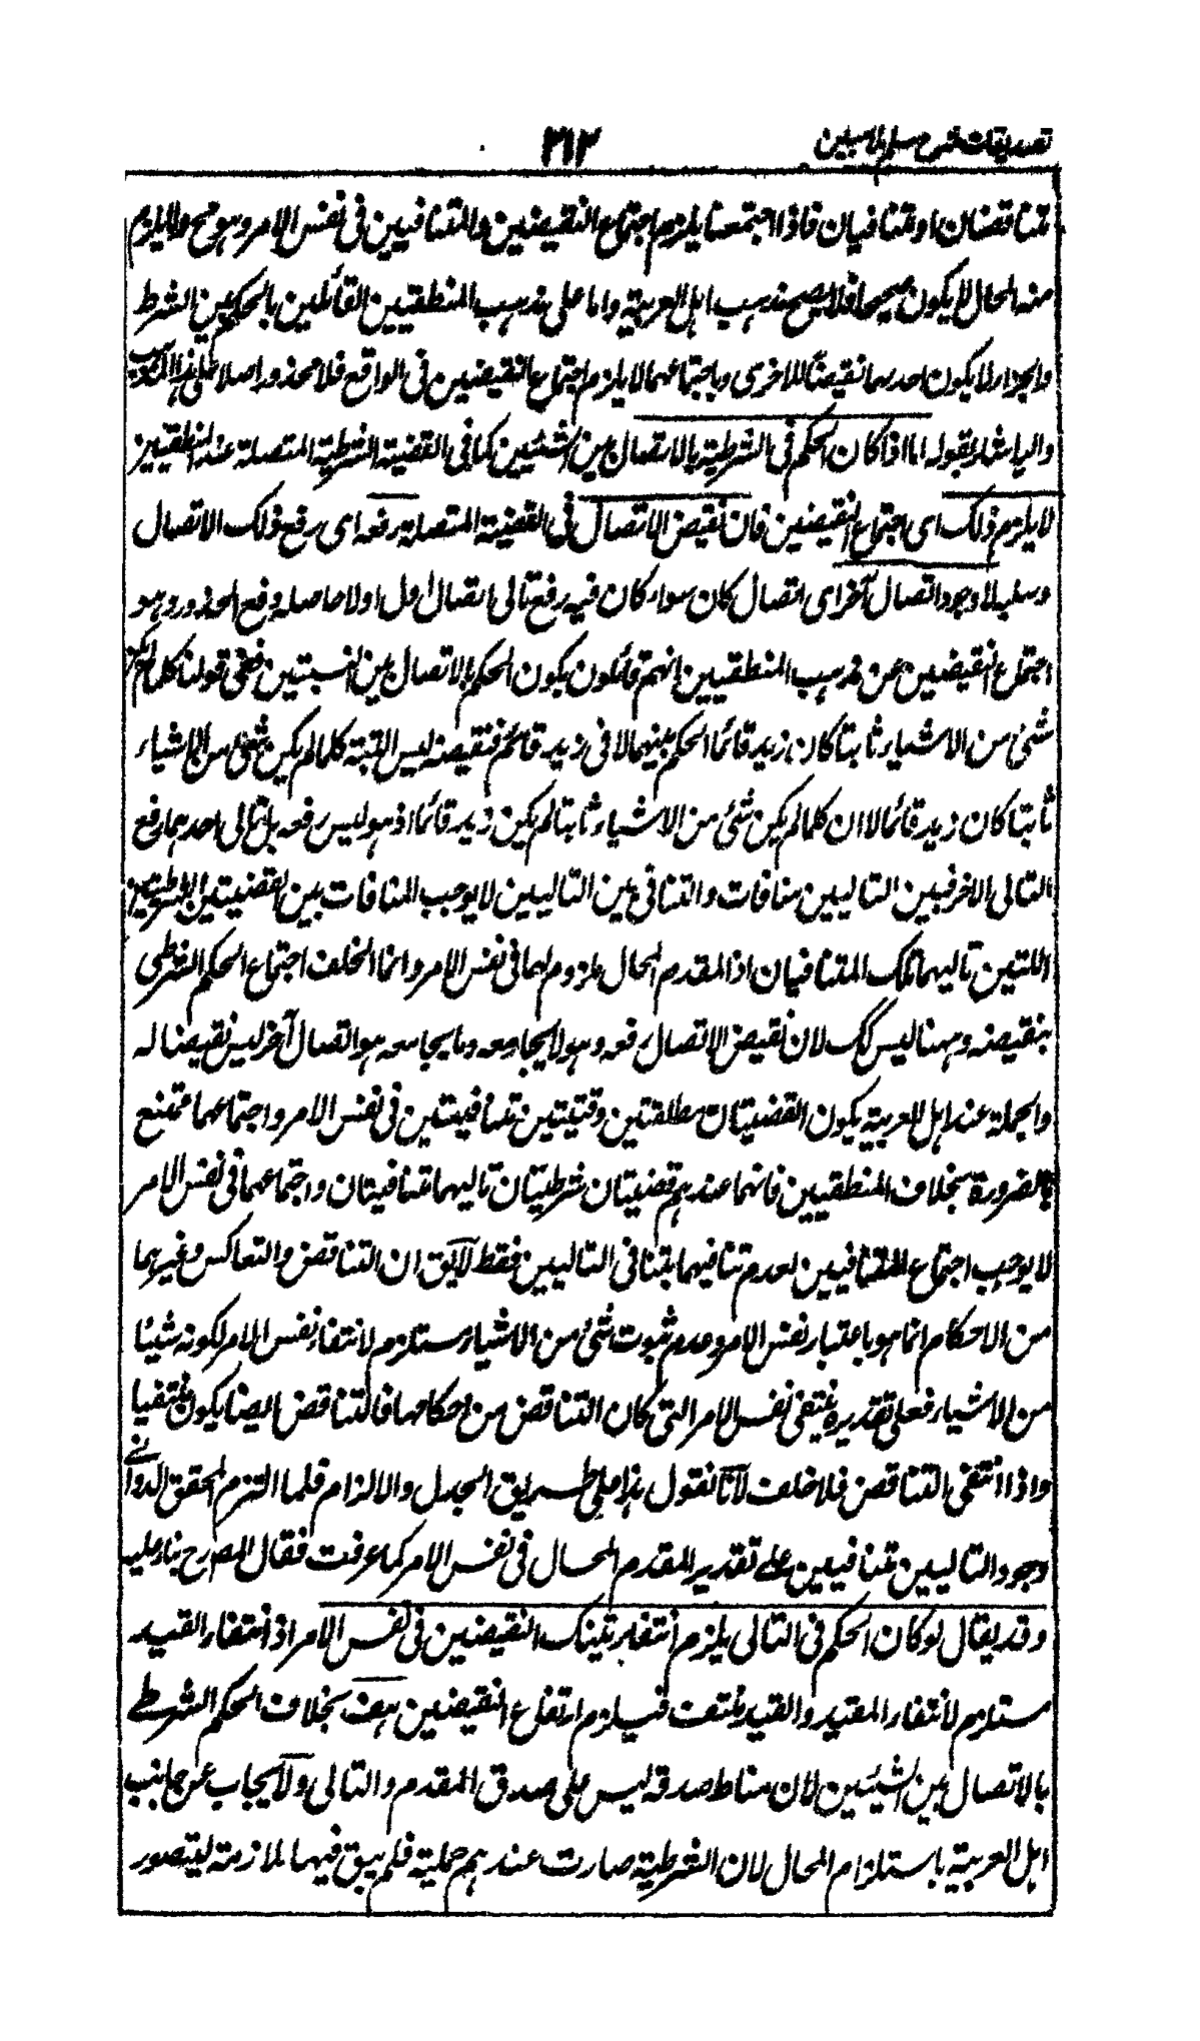 تصدیقات شرح سلم لملا مبین ۲۱۲
متناقضان او متنافیان فاذا اجتمعتا یلزم اجتماع النقیضین والمتنافیین فی نفس الامر وہو مح وما یلزم
منہ المحال لا یکون صحیحا فلا یصح مذہب اہل العربیۃ واما علی مذہب المنطقیین القائلین بالحکم بین الشرط
والجزاء لا یکون احدہما نقیضا للاخری وباجتماعہما لا یلزم اجتماع النقیضین فی الواقع فلا محذور اصلا علی ہذا المذہب
والیہ اشار بقولہ اما اذا کان الحکم فی الشرطیۃ بالاتصال بین الشیئین کما فی القضیۃ الشرطیۃ المتصلۃ عند المنطقیین
لا یلزم ذلک ای اجتماع النقیضین فان نقیض الاتصال فی القضیۃ المتصلۃ رفعہ ای رفع ذلک الاتصال
وسلبہ لا وجود اتصال آخر ای اتصال کان سواء کان فیہ رفع تالی اتصال اول اولا حاصلہ دفع المحذور وہو
اجتماع النقیضین عن مذہب المنطقیین انہم قائلون یکون الحکم بالاتصال بین النسبتین ففی قولنا کلما لم یکن
شئ من الاشیاء ثابتا کان زید قائما الحکم بینہما لا فی زید قائم فنقیضہ لیس البتۃ کلما لم یکن شئ من الاشیاء
ثابتا کان زید قائما لا ان کلما لم یکن شئ من الاشیاء ثابتا لم یکن زید قائما اذ ہو لیس رفعہ بل تالی احدہما رفع
التالی الاخر فبین التالیین منافات والتنافی بین التالیین لا یوجب المنافات بین القضیتین الشرطیتین
اللتین تالیہما تلک المتنافیان اذ المقدم المحال ملزوم لہما فی نفس الامر وانما الخلف اجتماع الحکم الشرطی
بنقیضہ وہہنا لیس کک لان نقیض الاتصال رفعہ وہو لا یجامعہ وما یجامعہ ہو اتصال آخر لیس نقیضا لہ
والجملۃ عند اہل العربیۃ یکون القضیتان مطلقتین وقتیتین متنافیتین فی نفس الامر واجتماعہما ممتنع
بالضرورۃ بخلاف المنطقیین فانہما عندہم قضیتان شرطیتان تالیہما متنافیتان واجتماعہما فی نفس الامر
لا یوجب اجتماع المتنافیین لعدم تنافیہما بتنافی التالیین فقط لا یق ان التناقض والتعاکس وغیرہما
من الاحکام انما ہو باعتبار نفس الامر وعدم ثبوت شئ من الاشیاء مستلزم لانتفاء نفس الامر لکونہ شیئا
من الاشیاء فعلی تقدیرہ ینتفی نفس الامر التی کان التناقض من احکامہا فالتناقض ایضا یکون منتفیا
واذا انتفی التناقض فلا خلف لانا نقول ہذا علی طریق الجدل والالزام فلما التزم المحقق الدوانی
وجود التالیین متنافیین علی تقدیر المقدم المحال فی نفس الامر کما عرفت فقال المصرح بناء علیہ
وقد یقال لو کان الحکم فی التالی یلزم انتفاء تینک النقیضین فی نفس الامر اذ انتفاء القید
مستلزم لانتفاء المقید والقید منتف فیلزم ارتفاع النقیضین ہف بخلاف الحکم الشرطی
بالاتصال بین الشیئین لان مناط صدقہ لیس علی صدق المقدم والتالی ولا یجاب عن جانب
اہل العربیۃ باستلزام المحال لان الشرطیۃ صارت عندہم حملیۃ فلم یبق فیہا ملازمۃ لیتصور